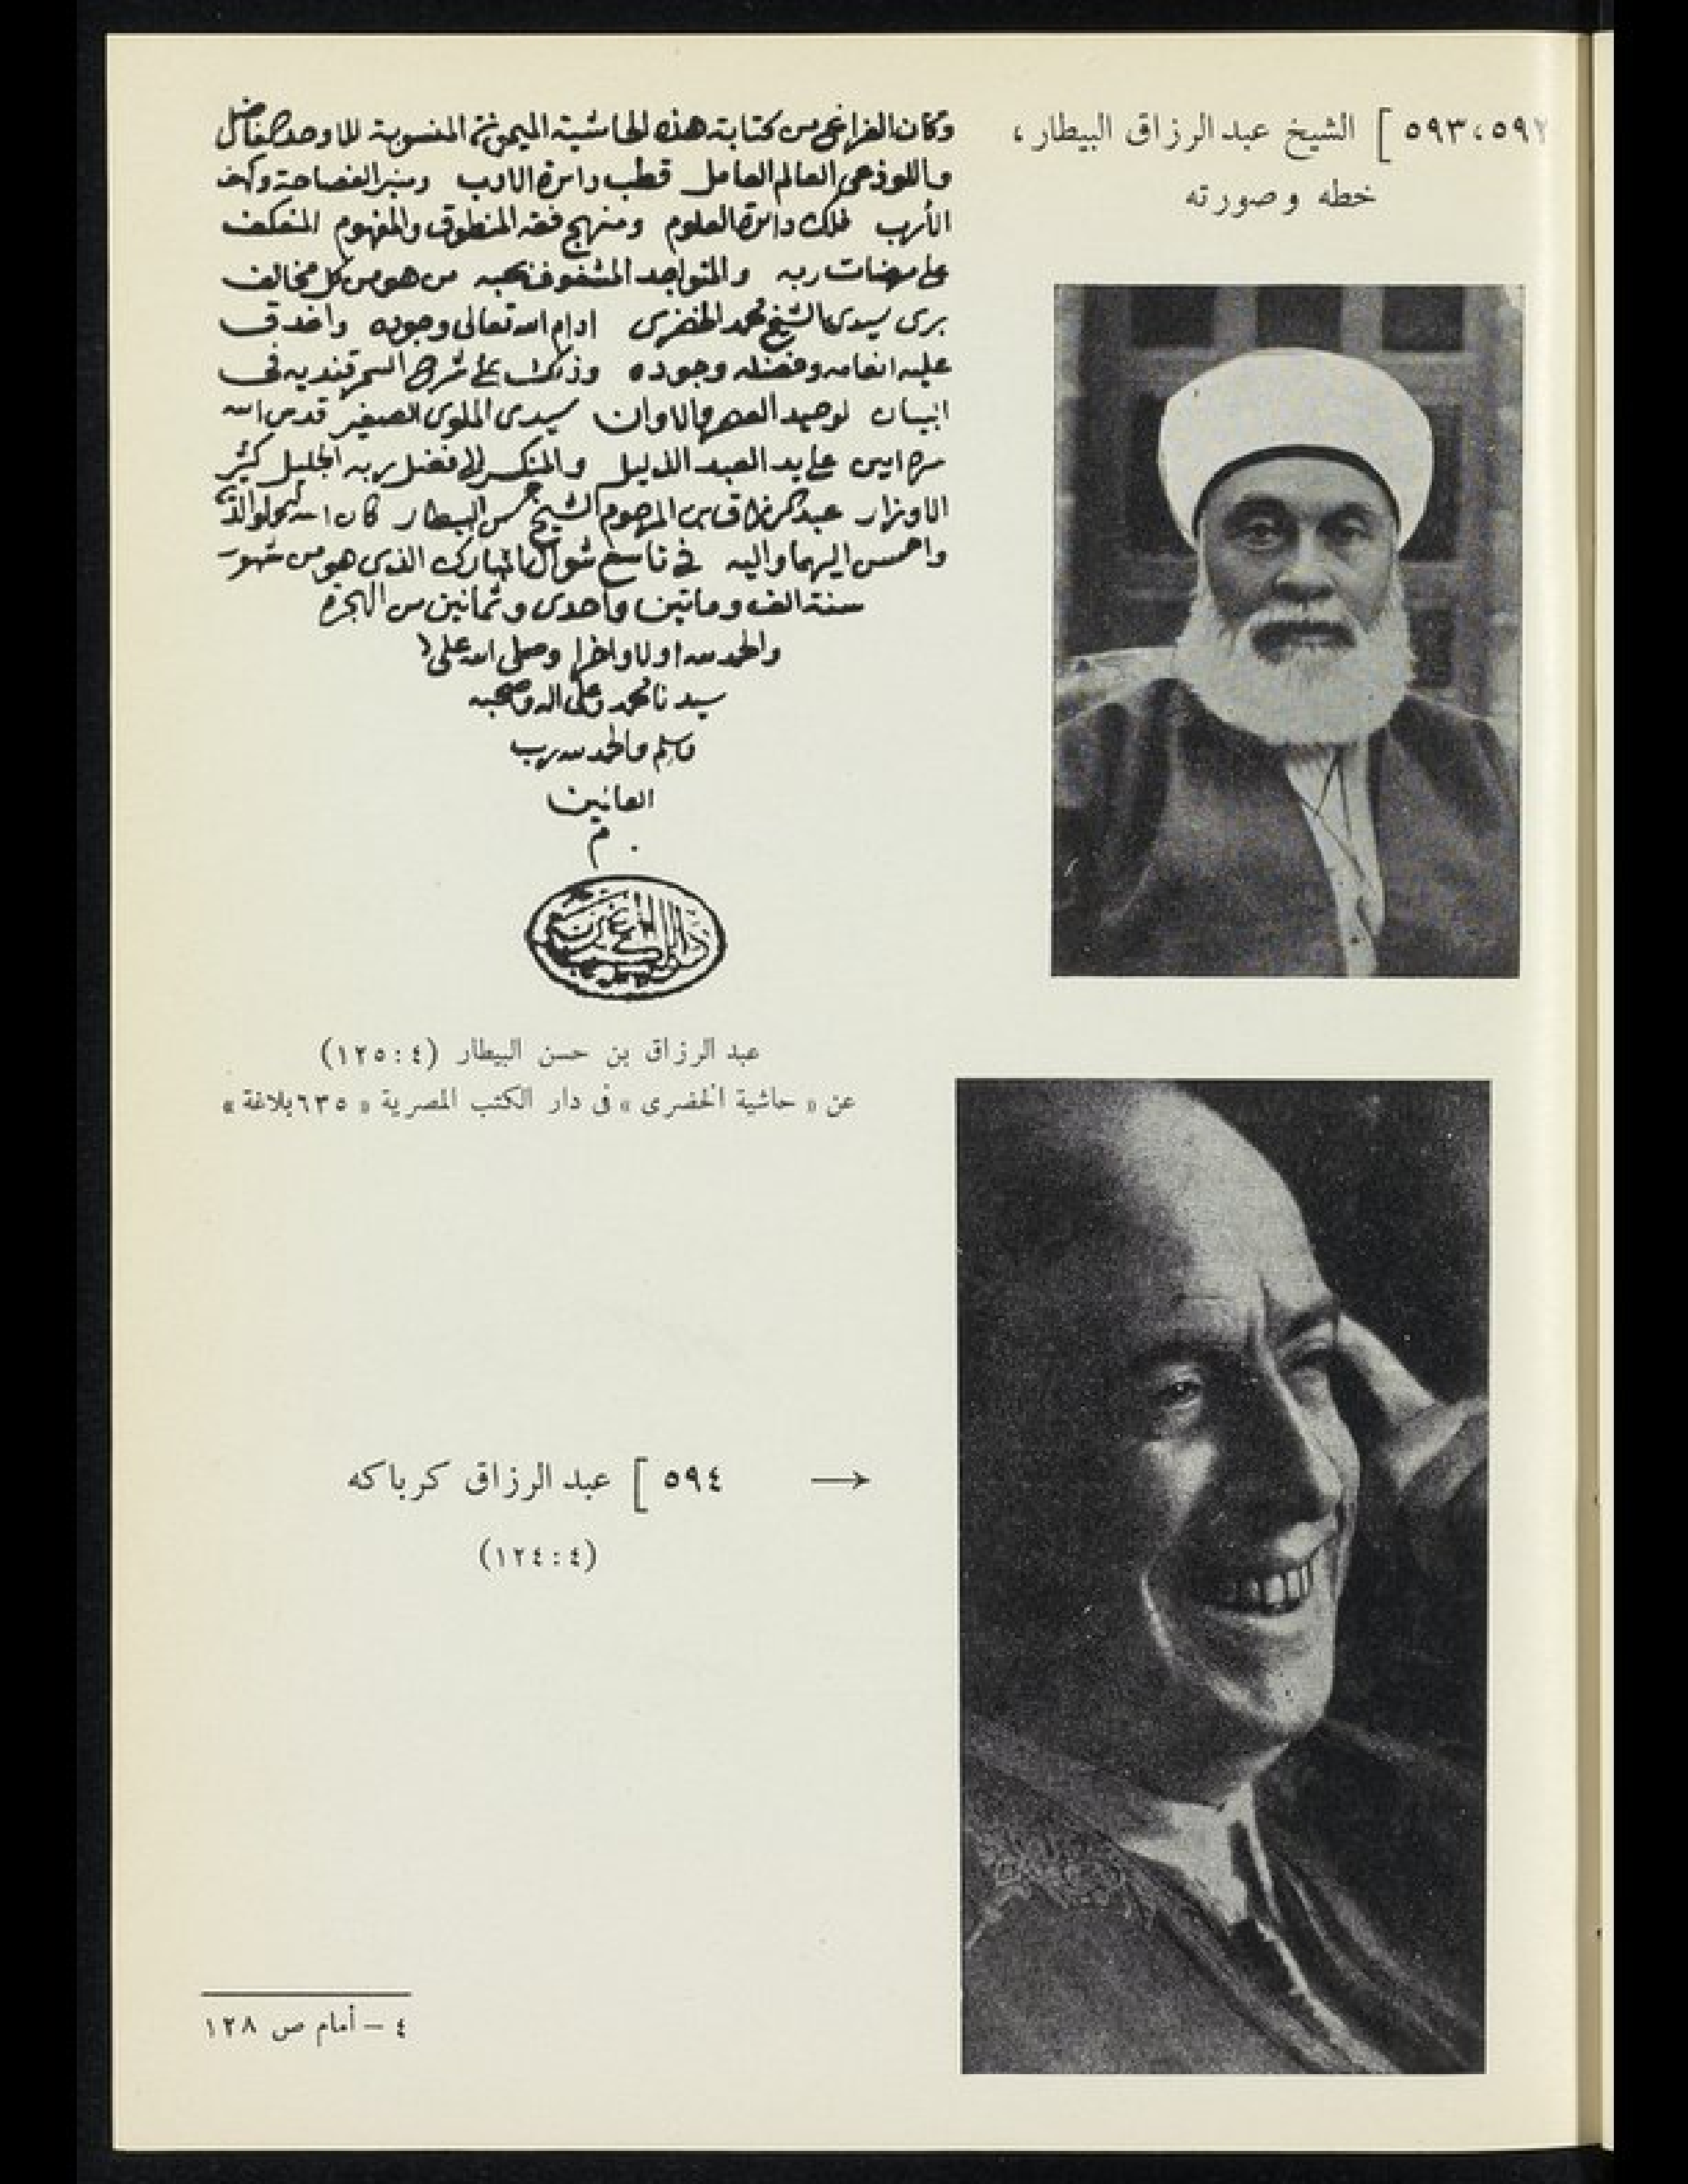 ٥٩٢، ٥٩٣ [ الشيخ عبد الرزاق البيطار،
خطه وصورته
وكان الفراغ من كتابة هذه الحاشية الميمونة المنسوبة للاوحد الفاضل
واللوذعي العالم العامل قطب دائرة الادب ومنبر الفصاحة
الأرب فلك دائرة العلوم ومنهج فقه المنطوق والمفهوم المنعكف
على مرضات ربه والمتواجد المشغوف بحبه من هو من كل مخالف
برى سيدى الشيخ محمد الخضرى ادام الله تعالى وجوده واغدق
عليه انعامه وفضله وجوده وذلك على شرح السمرقنديه فى
البيان لوحيد العصر والاوان سيدى الملوى الصغير قدس الله
على يد العبد الذليل والمنكسر الى فضل ربه الجليل كثير
الاوزار عبد الرزاق ابن المرحوم الشيخ حسن البيطار كان الله
واحسن اليهما واليه في تاسع شوال المبارك الذى هو من شهور
سنة الف وماتين واحدى وثمانين من الهجرة
والحمد لله اولا واخرا وصلى الله على
سيدنا محمد وعلى اله وصحبه
وسلم والحمد لله رب
العالمين
م
عبد الرزاق بن حسن البيطار (٤ : ١٢٥)
عن « حاشية الخضرى » فى دار الكتب المصرية « ٦٣٥ بلاغة »
٥٩٤ [ عبد الرزاق كرباكه
(٤ : ١٢٤)
٤ – أمام ص ١٢٨